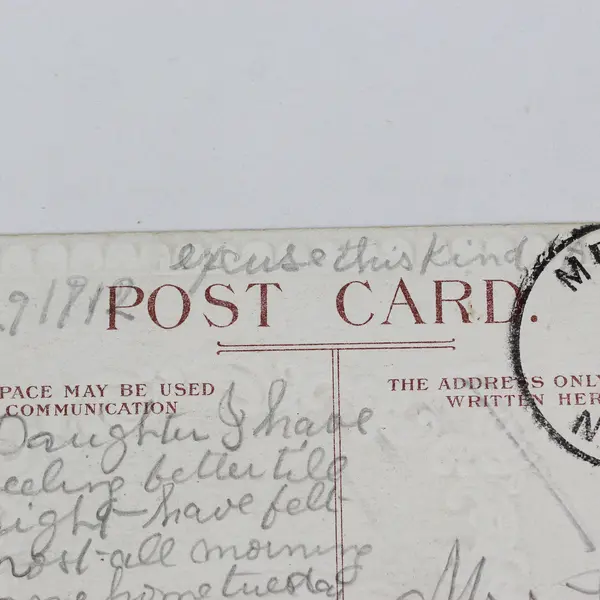 excuse this kind
9 1912
POST CARD.
PACE MAY BE USED
COMMUNICATION
THE ADDRESS ONLY
WRITTEN HER
ME
N
Daughter I have
eeling better till
ight have felt
most all morning
home tuesday
Mrs